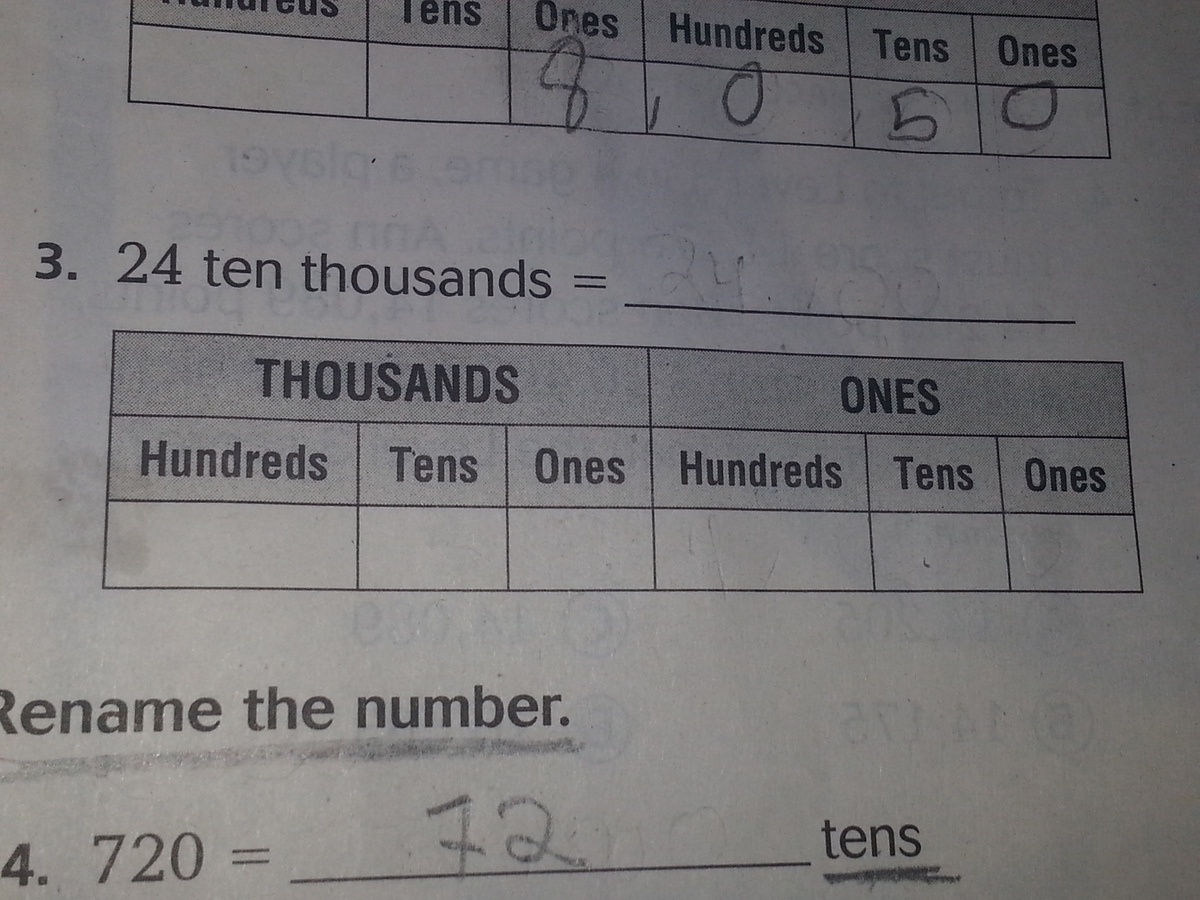 Hundreds Tens Ones Hundreds Tens Ones
8 , 0 5 0
3. 24 ten thousands =
THOUSANDS ONES
Hundreds Tens Ones Hundreds Tens Ones
Rename the number.
4. 720 = 72 tens